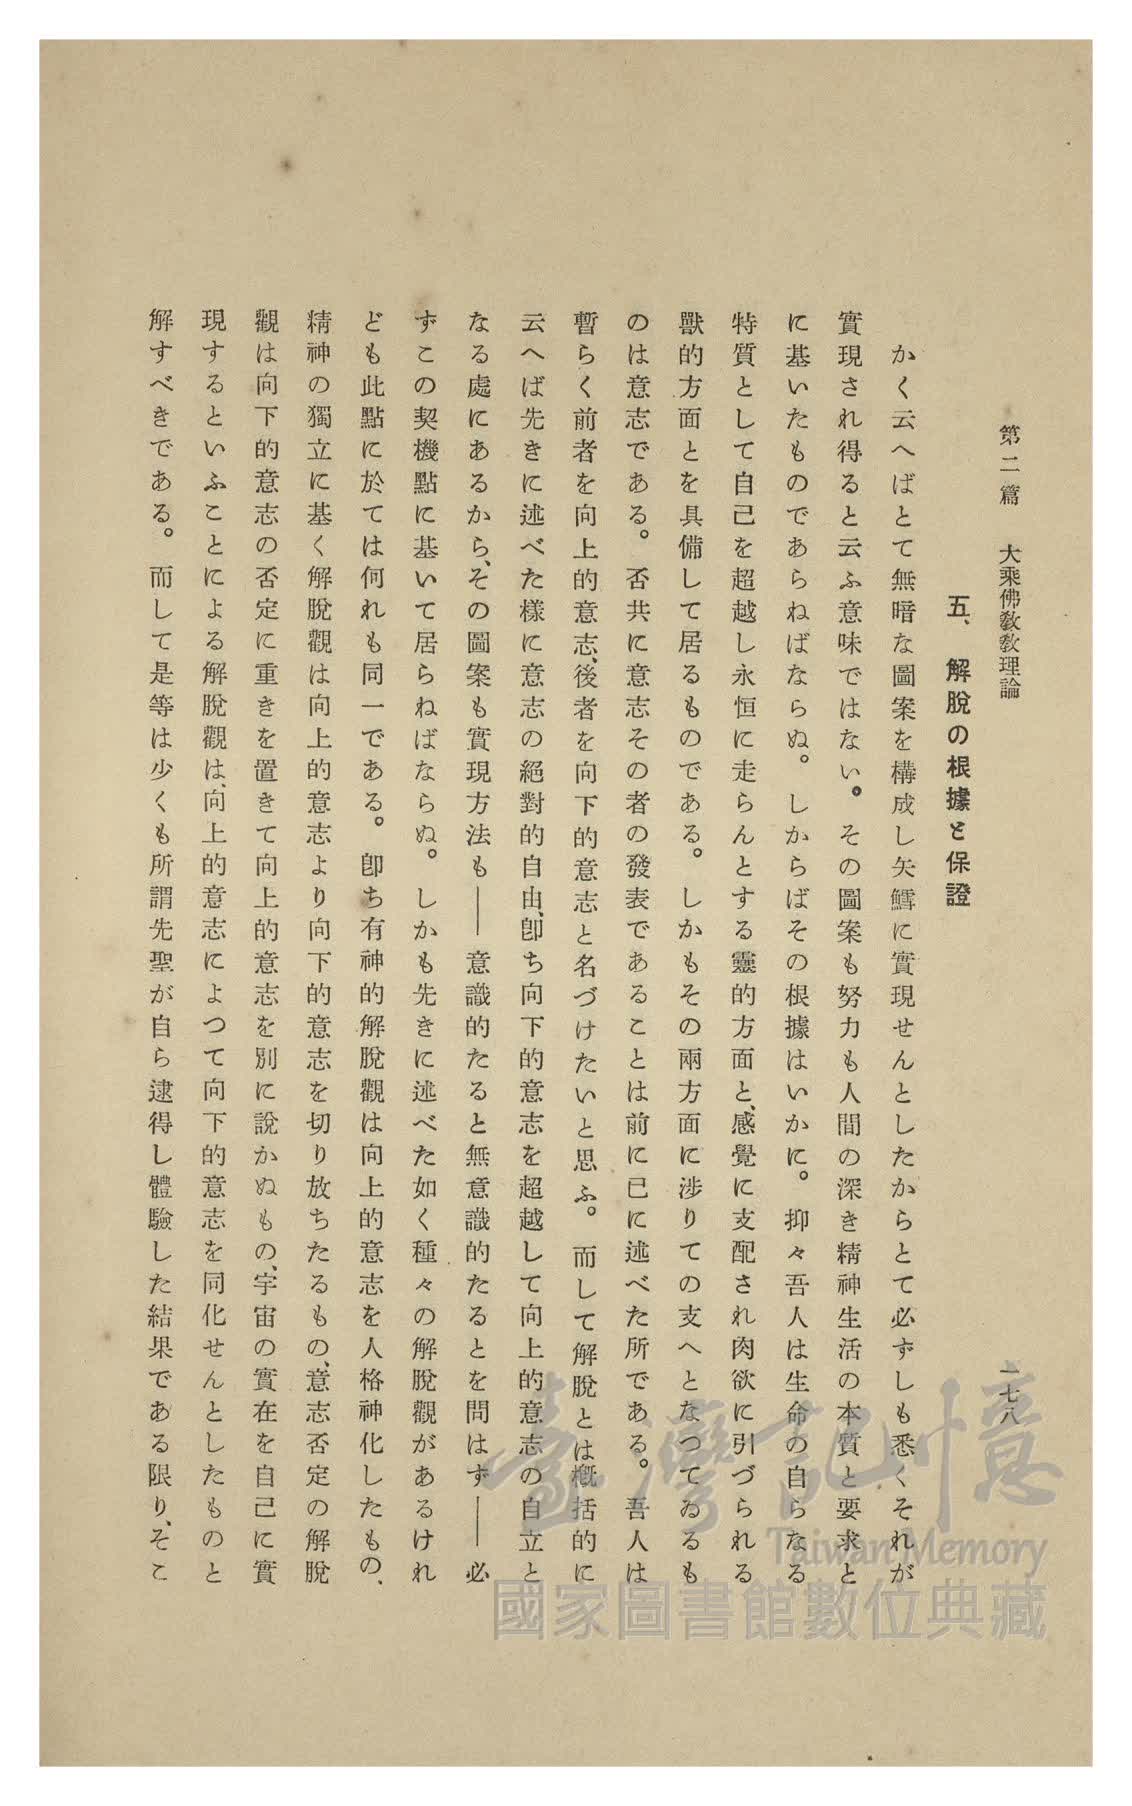 第二篇　大乘佛敎敎理論
一七八
五、　解脫の根據と保證
かく云へばとて無暗な圖案を構成し矢鱈に實現せんとしたからとて必ずしも悉くそれが
實現され得ると云ふ意味ではない。その圖案も努力も人間の深き精神生活の本質と要求と
に基いたものであらねばならぬ。しからばその根據はいかに。抑々吾人は生命の自らなる
特質として自己を超越し永恒に走らんとする靈的方面と、感覺に支配され肉欲に引づられる
獸的方面とを具備して居るものである。しかもその兩方面に涉りての支へとなつてゐるも
のは意志である。否共に意志その者の發表であることは前に已に述べた所である。吾人は
暫らく前者を向上的意志、後者を向下的意志と名づけたいと思ふ。而して解脫とは槪括的に
云へば先きに述べた樣に意志の絕對的自由、卽ち向下的意志を超越して向上的意志の自立と
なる處にあるから、その圖案も實現方法も――意識的たると無意識的たるとを問はず――必
ずこの契機點に基いて居らねばならぬ。しかも先きに述べた如く種々の解脫觀があるけれ
ども此點に於ては何れも同一である。卽ち有神的解脫觀は向上的意志を人格神化したもの、
精神の獨立に基く解脫觀は向上的意志より向下的意志を切り放ちたるもの、意志否定の解脫
觀は向下的意志の否定に重きを置きて向上的意志を別に說かぬもの、宇宙の實在を自己に實
現するといふことによる解脫觀は、向上的意志によつて向下的意志を同化せんとしたものと
解すべきである。而して是等は少くも所謂先聖が自ら逮得し體驗した結果である限り、そこ
臺灣記憶
Taiwan Memory
國家圖書館數位典藏